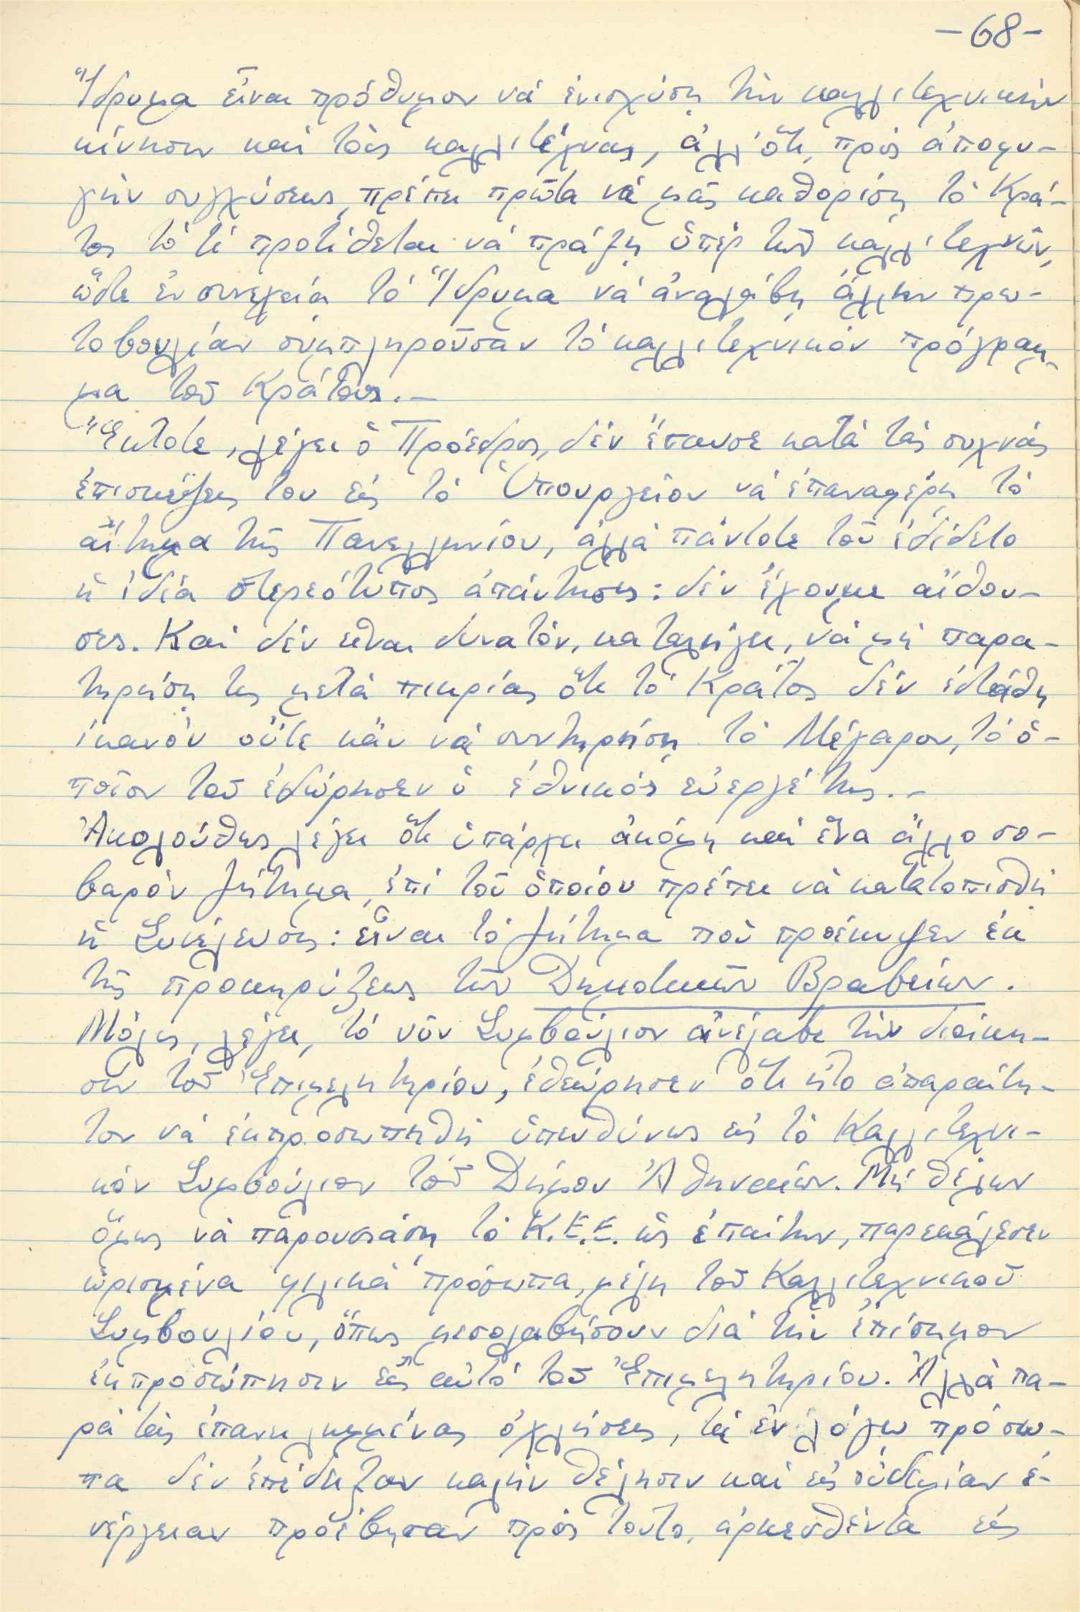 -68-
Ἵδρυμα εἶναι πρόθυμον νά ἐνισχύσῃ τήν καλλιτεχνικήν
κίνησιν καί τούς καλλιτέχνας, ἀλλ' ὅτι, πρός ἀποφυ-
γήν συγχύσεως, πρέπει πρῶτα νά μᾶς καθορίσῃ τό Κρά-
τος τό τί προτίθεται νά πράξῃ ὑπέρ τῶν καλλιτεχνῶν,
ὥστε ἐν συνεχείᾳ τό Ἵδρυμα νά ἀναλάβῃ ἄλλην πρω-
τοβουλίαν συμπληροῦσαν τό καλλιτεχνικόν πρόγραμ-
μα τοῦ Κράτους.-
Ἔκτοτε, λέγει ὁ Πρόεδρος, δέν ἔπαυσε κατά τάς συχνάς
ἐπισκέψεις του εἰς τό Ὑπουργεῖον νά ἐπαναφέρῃ τό
αἴτημα τῆς Πανελληνίου, ἀλλά πάντοτε τοῦ ἐδίδετο
ἡ ἰδία στερεότυπος ἀπάντησις: δέν ἔχουμε αἴθου-
σες. Καί δέν εἶναι δυνατόν, καταλήγει, νά μή παρα-
τηρήσῃ τις μετά πικρίας ὅτι τό Κράτος δέν ἐστάθη
ἱκανόν οὔτε κἄν νά συντηρήσῃ τό Μέγαρον, τό ὁ-
ποῖον τοῦ ἐδώρησεν ὁ ἐθνικός εὐεργέτης.-
Ἀκολούθως λέγει ὅτι ὑπάρχει ἀκόμη καί ἕνα ἄλλο σο-
βαρόν ζήτημα, ἐπί τοῦ ὁποίου πρέπει νά κατατοπισθῇ
ἡ Συνέλευσις: εἶναι τό ζήτημα πού προέκυψεν ἐκ
τῆς προκηρύξεως τῶν Δημοτικῶν Βραβείων.
Μόλις, λέγει, τό νῦν Συμβούλιον ἀνέλαβε τήν διοίκη-
σιν τοῦ Ἐπιμελητηρίου, ἐθεώρησεν ὅτι ἦτο ἀπαραίτη-
τον νά ἐκπροσωπηθῇ ὑπευθύνως εἰς τό Καλλιτεχνι-
κόν Συμβούλιον τοῦ Δήμου Ἀθηναίων. Μή θέλων
ὅμως νά παρουσιάσῃ τό Κ.Ε.Ε. ὡς ἐπαίτην, παρεκάλεσεν
ὡρισμένα φιλικά πρόσωπα, μέλη τοῦ Καλλιτεχνικοῦ
Συμβουλίου, ὅπως μεσολαβήσουν διά τήν ἐπίσημον
ἐκπροσώπησιν εἰς αὐτό τοῦ Ἐπιμελητηρίου. Ἀλλά πα-
ρά τάς ἐπανειλημμένας ὀχλήσεις, τά ἐν λόγῳ πρόσω-
πα δέν ἐπέδειξαν καλήν θέλησιν καί εἰς οὐδεμίαν ἐ-
νέργειαν προέβησαν πρός τοῦτο, ἀρκεσθέντα εἰς